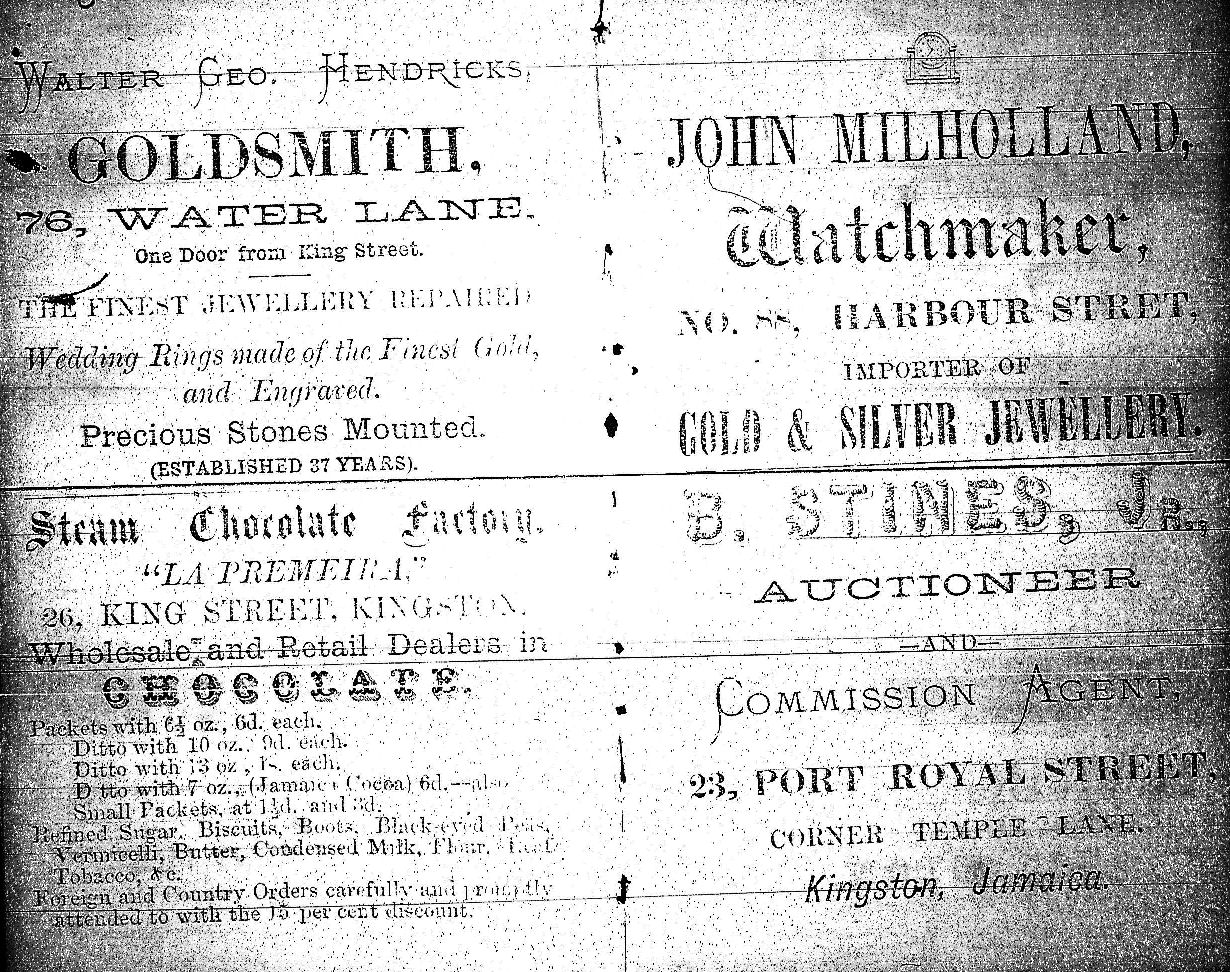 WALTER GEO. HENDRICKS,
GOLDSMITH,
76, WATER LANE.
One Door from King Street.
THE FINEST JEWELLERY REPAIRED
Wedding Rings made of the Finest Gold,
and Engraved.
Precious Stones Mounted.
(ESTABLISHED 37 YEARS).
Steam Chocolate Factory.
"LA PREMEIRA."
26, KING STREET, KINGSTON.
Wholesale and Retail Dealers in
CHOCOLATE.
Packets with 6½ oz., 6d. each.
Ditto with 10 oz., 9d. each.
Ditto with 13 oz., 1s. each.
Ditto with 7 oz., (Jamaica Cocoa) 6d.—also
Small Packets, at 1½d. and 3d.
Refined Sugar, Biscuits, Boots, Black-eyed Peas,
Vermicelli, Butter, Condensed Milk, Flour,
Tobacco, &c.
Foreign and Country Orders carefully and promptly
attended to with the 15 per cent discount.
JOHN MILHOLLAND,
Watchmaker,
NO. 88, HARBOUR STRET,
IMPORTER OF
GOLD & SILVER JEWELLERY.
B. STINES, JR.,
AUCTIONEER
—AND—
COMMISSION AGENT
23, PORT ROYAL STREET,
CORNER TEMPLE LANE.
Kingston, Jamaica.